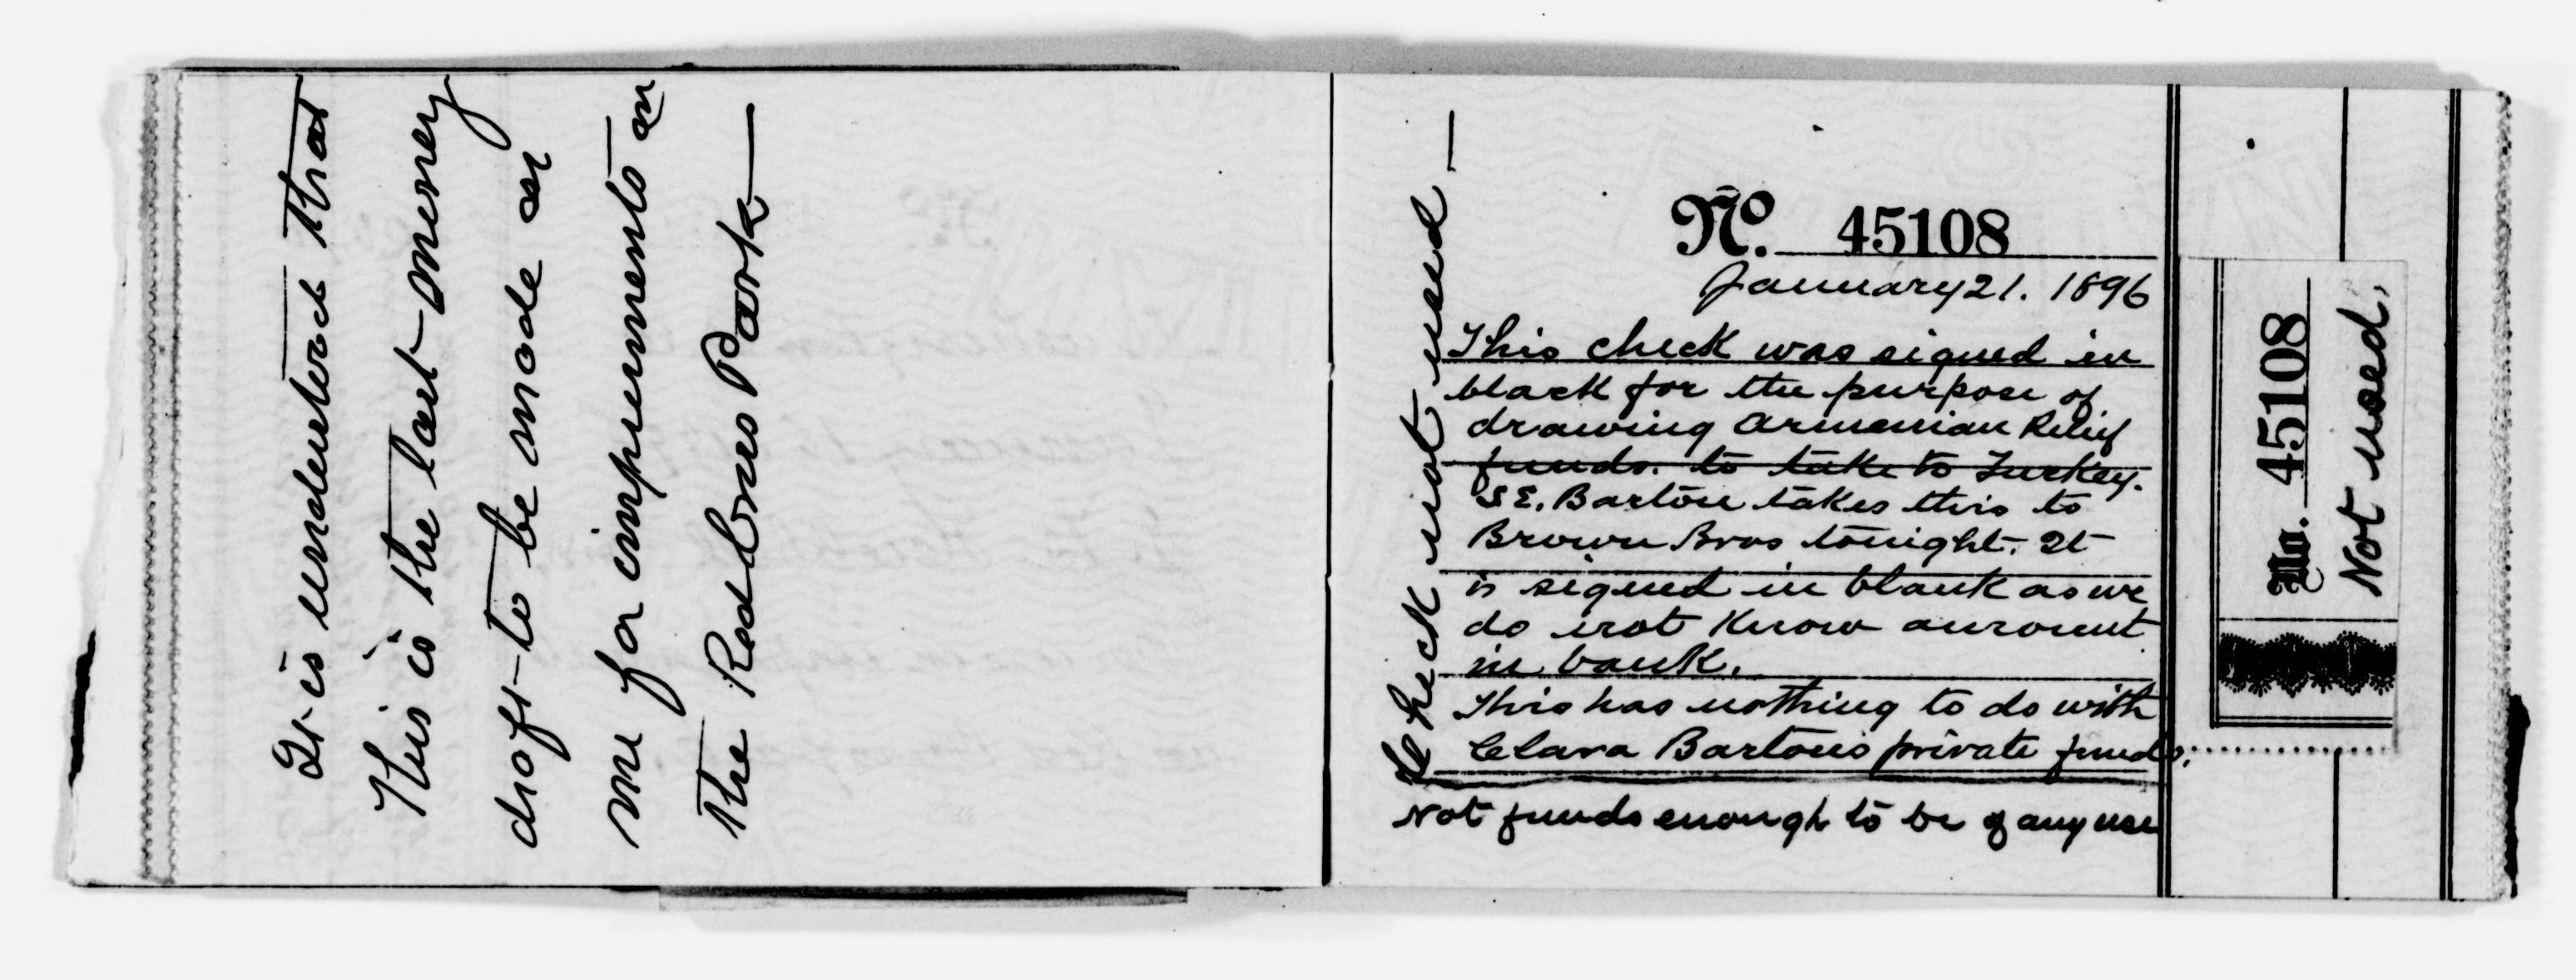 It is understood that
this is the last money
draft to be made on
me for improvements on
the Red Cross Park —
Check not used —
No. 45108
January 21. 1896
This check was signed in
black for the purpose of
drawing Armenian Relief
funds. to take to Turkey.
S E. Barton takes this to
Brown Bros tonight. It
is signed in blank as we
do not know amount
in bank.
This has nothing to do with
Clara Barton's private funds.
Not funds enough to be of any use
No. 45108
Not used.